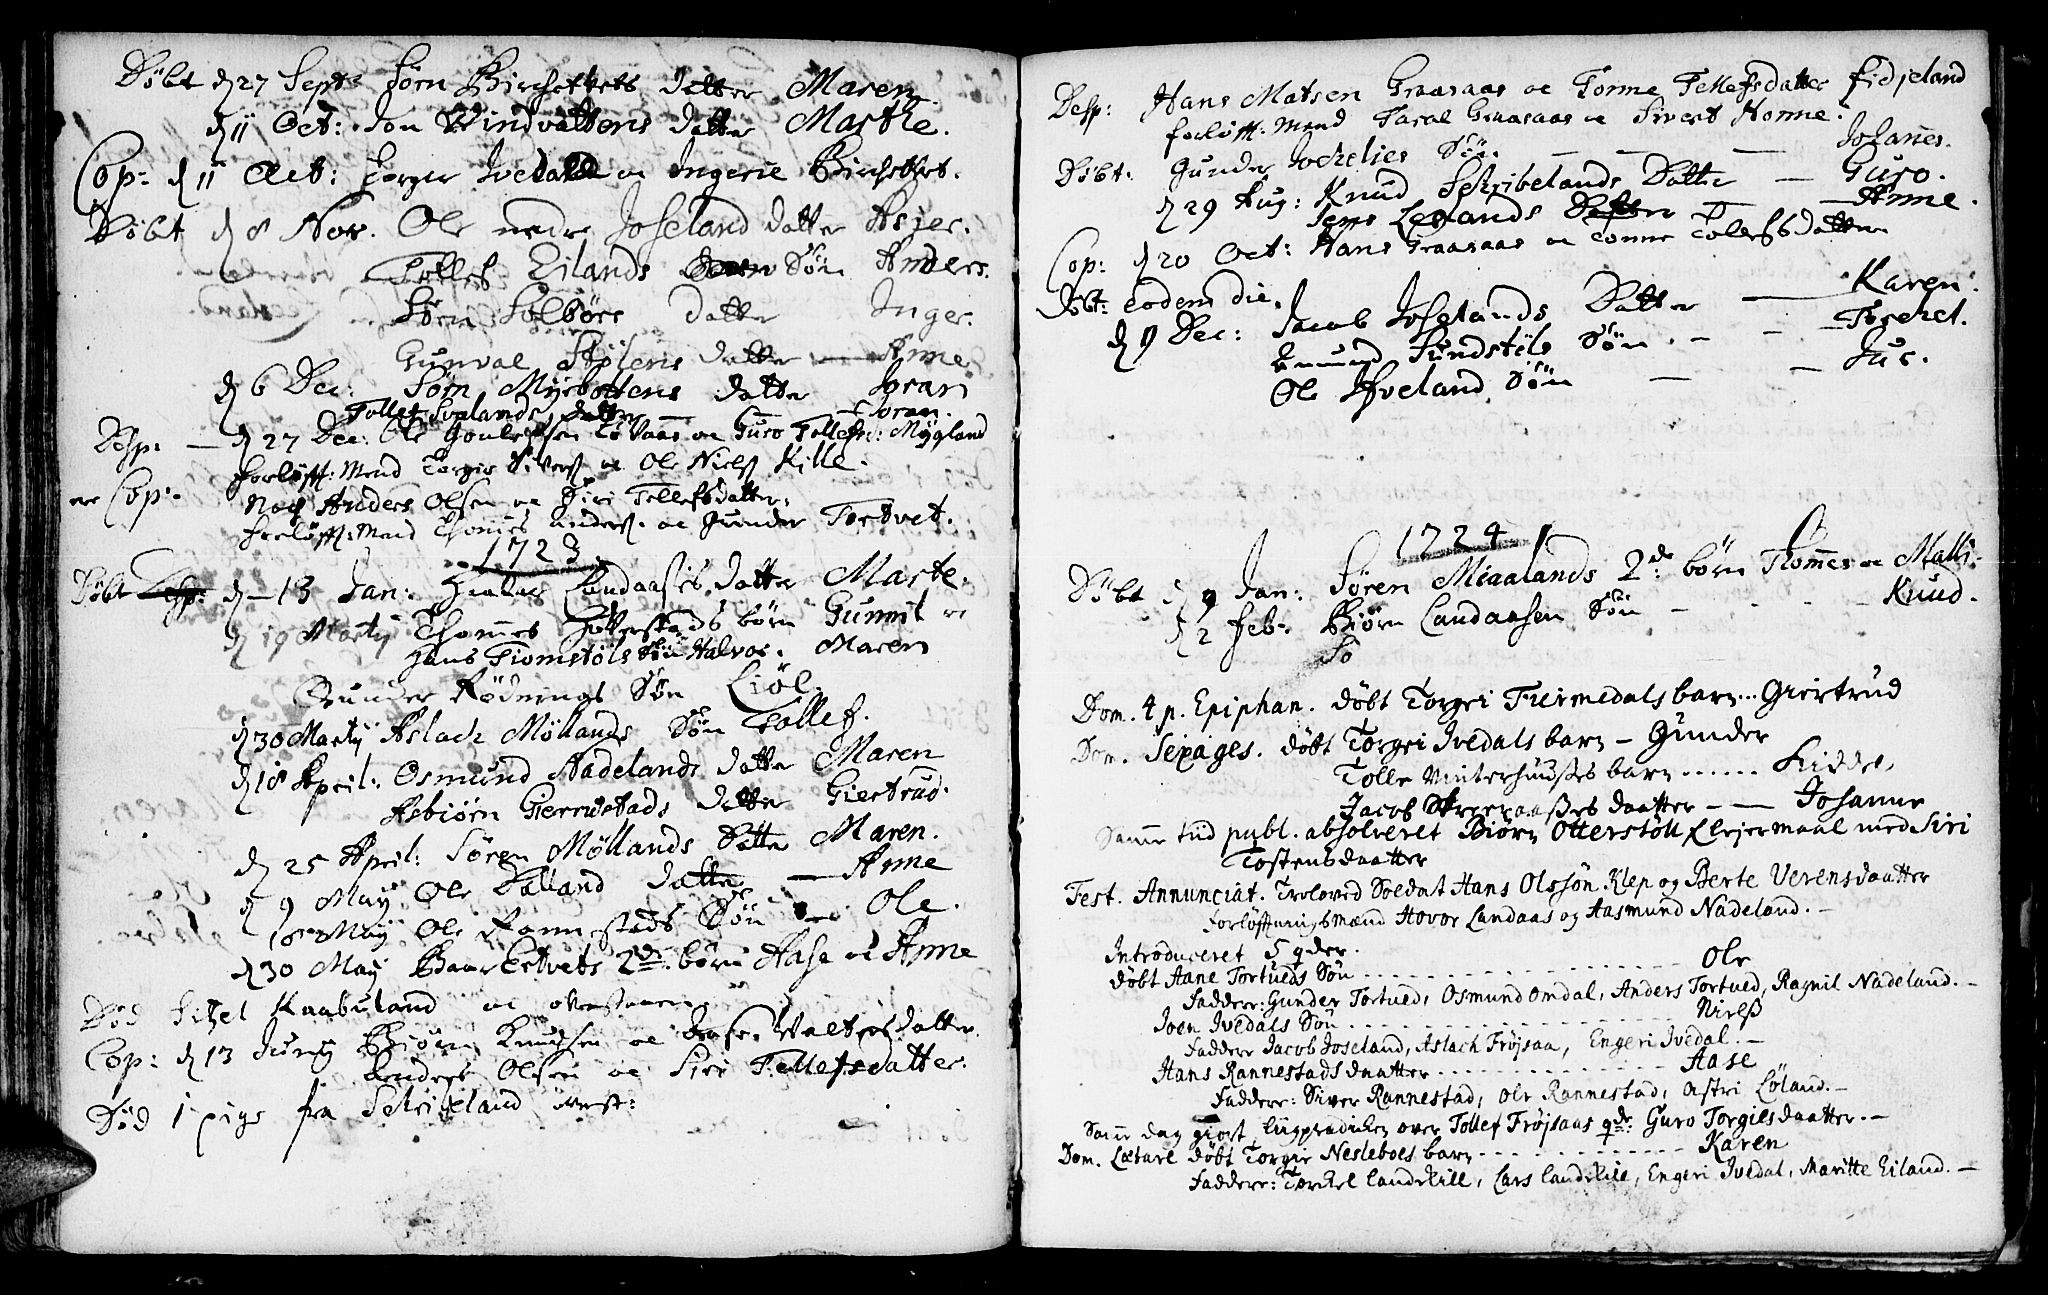 Döbt d 27 Sept: Sörn Birchettets datter Maren
d 11 Oct: Jon Windvattens datter Marthe.
Cop: d 11 Oct: Torger Ivedal oc Ingerie Birchettet.
Döbt d 8 Nov. Ole nedre Joseland datter Asjer.
Tollef Eilands Sön Anders.
Sörn Solbörs datter Inger.
Gunval Stölens datter — Anne.
d 6 Dec: Sörn Myrbottens datter Joran
Tollef Svalands datter — Joran.
Desp: — d 27 Dec: Ole oc Guro Tollefsd: Mygland
forlöfft: Mend Torger Sivers oc Ole Niels Kille.
Cop: Noch Anders Olsen oc Siri Tellefsdatter:
forlöfft: Mend Thomes anders. oc Gunder Tortvet.
1723
Döbt d — 13 Jan: Landaases datter Marte.
d 19 Martij Thomes Hölterstads börn Gunnil oc
Hans Tiomstöls Sön Halvor. Maren
Gunder Rödnings Sön Liöl.
d 30 Martij Aslach Möllands Sön Tollef.
d 18 April: Osmund Nadelands datter Maren
Asbiörn Gerrustads datter Giertrud.
d 25 April: Sören Möllands datter Maren.
d 9 May Ole Dalland datter — Anne
May Ole Rannestads Sön — Ole.
d 30 May Baar Estvets 2de börn Aase oc Anne
Död Sizel Kaabuland oc
Cop: d 13 Junij Biörn Knudsen oc Aase Waltersdatter
Anders Olsen oc Siri Tellefsdatter.
Död 1 pige fra Schribeland
Desp: Hans Matsen Graasaas oc Tonne Tellefsdatter fidjeland
forlöfft: Mend Taral Graasaas oc Sivert Honne.
Döbt: Gunder Jochelies Sön. — — — Johanes.
d 29 Aug: Knud Schribelands Datter — Guro.
Jens Leelands Datter — Anne.
Cop: d 20 Oct: Hans Graasaas oc Tonne Tolefsdatter
Döbt: eodem die. Jacob Joselands Datter — Karen.
d 9 Dec: Emund Sundstöls Sön. — Torchel.
Ole Ifveland Sön — — Juc.
1724
Döbt d 9 Jan: Sören Miaalands 2de börn Thomes oc Malli.
d 2 Feb: Biörn Landaasen Sön — — Knud.
So
Dom. 4 p. Epiphan. döbt Torgri Treimedals barn... Giertrud
Dom. Sexages. döbt Torgri Ivedals barn — Gunder
Tolle Vinterhuuses barn ...... Kiddel,
Jacob Skreeraaßes daatter — — Johanne
Samme tiid publ. absolveret Biörn Otterstöll Lejermaal med Siri
Tostensdaatter
Fest. Annunciat. Troloved Soldat Hans Olssön Klep og Berte Verensdaatter
Forlöffningsmænd Hovor Landaas og Aasmund Nadeland. —
Introduceret 5 qder.
döbt Aane Tortveds Sön ........ Ole
Faddere: Gunder Tortved, Osmund Omdal, Anders Tortved, Ragnil Nadeland. —
Joen Ivedals Sön ........ Nielß
Faddere Jacob Joseland, Aslach Fröjsaa, Engeri Ivedal. —
Hans Rannestads daatter ........ Aase
Faddere: Siver Rannestad, Ole Rannestad, Astri Löland. —
Same dag giort Liigprædicken over Tollef Fröjsaas qde: Guro Torgiesdaatter. —
Dom. Lætare döbt Torgir Nesleboes barn ........ Karen
Faddere: Torkel Landekill, Lars Landekill, Engeri Ivedal, Maritte Eiland. —